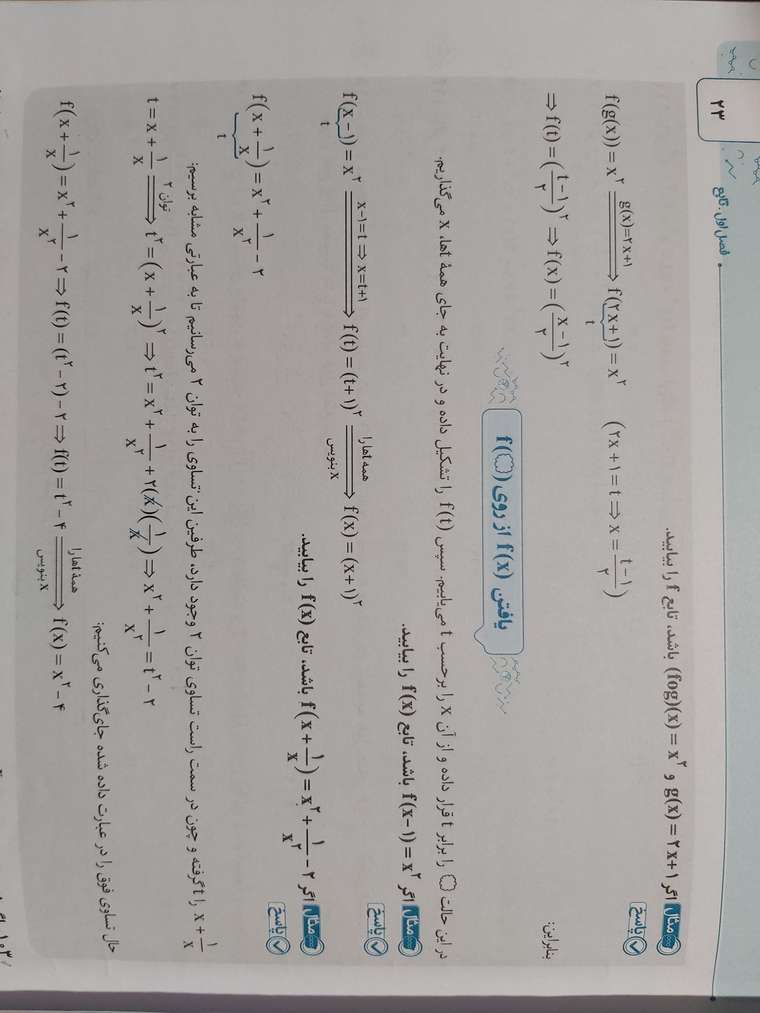 ۲۳
فصل اول: تابع
مثال اگر g(x) = ۲x + ۱ و (fog)(x) = x^۲ باشد، تابع f را بیابید.
پاسخ
f(g(x)) = x^۲ ==g(x)=۲x+۱==> f(۲x+۱) = x^۲ (۲x + ۱ = t ⇒ x = (t − ۱)/۲)
t
بنابراین:
⇒ f(t) = ((t−۱)/۲)^۲ ⇒ f(x) = ((x−۱)/۲)^۲
یافتن f(x) از روی f(◌)
در این حالت ◌ را برابر t قرار داده و از آن x را برحسب t می‌یابیم. سپس f(t) را تشکیل داده و در نهایت به جای همهٔ tها، x می‌گذاریم.
مثال اگر f(x−۱) = x^۲ باشد، تابع f(x) را بیابید.
پاسخ
f(x−۱) = x^۲ ==x−۱=t ⇒ x=t+۱==> f(t) = (t+۱)^۲ ==همه tها را x بنویس==> f(x) = (x+۱)^۲
t
مثال اگر f(x + ۱/x) = x^۲ + ۱/x^۲ − ۲ باشد، تابع f(x) را بیابید.
پاسخ
f(x + ۱/x) = x^۲ + ۱/x^۲ − ۲
t
x + ۱/x را t گرفته و چون در سمت راست تساوی توان ۲ وجود دارد، طرفین این تساوی را به توان ۲ می‌رسانیم تا به عبارتی مشابه برسیم:
t = x + ۱/x ==توان ۲==> t^۲ = (x + ۱/x)^۲ ⇒ t^۲ = x^۲ + ۱/x^۲ + ۲(x)(۱/x) ⇒ x^۲ + ۱/x^۲ = t^۲ − ۲
حال تساوی فوق را در عبارت داده شده جای‌گذاری می‌کنیم:
f(x + ۱/x) = x^۲ + ۱/x^۲ − ۲ ⇒ f(t) = (t^۲ − ۲) − ۲ ⇒ f(t) = t^۲ − ۴ ==همه tها را x بنویس==> f(x) = x^۲ − ۴